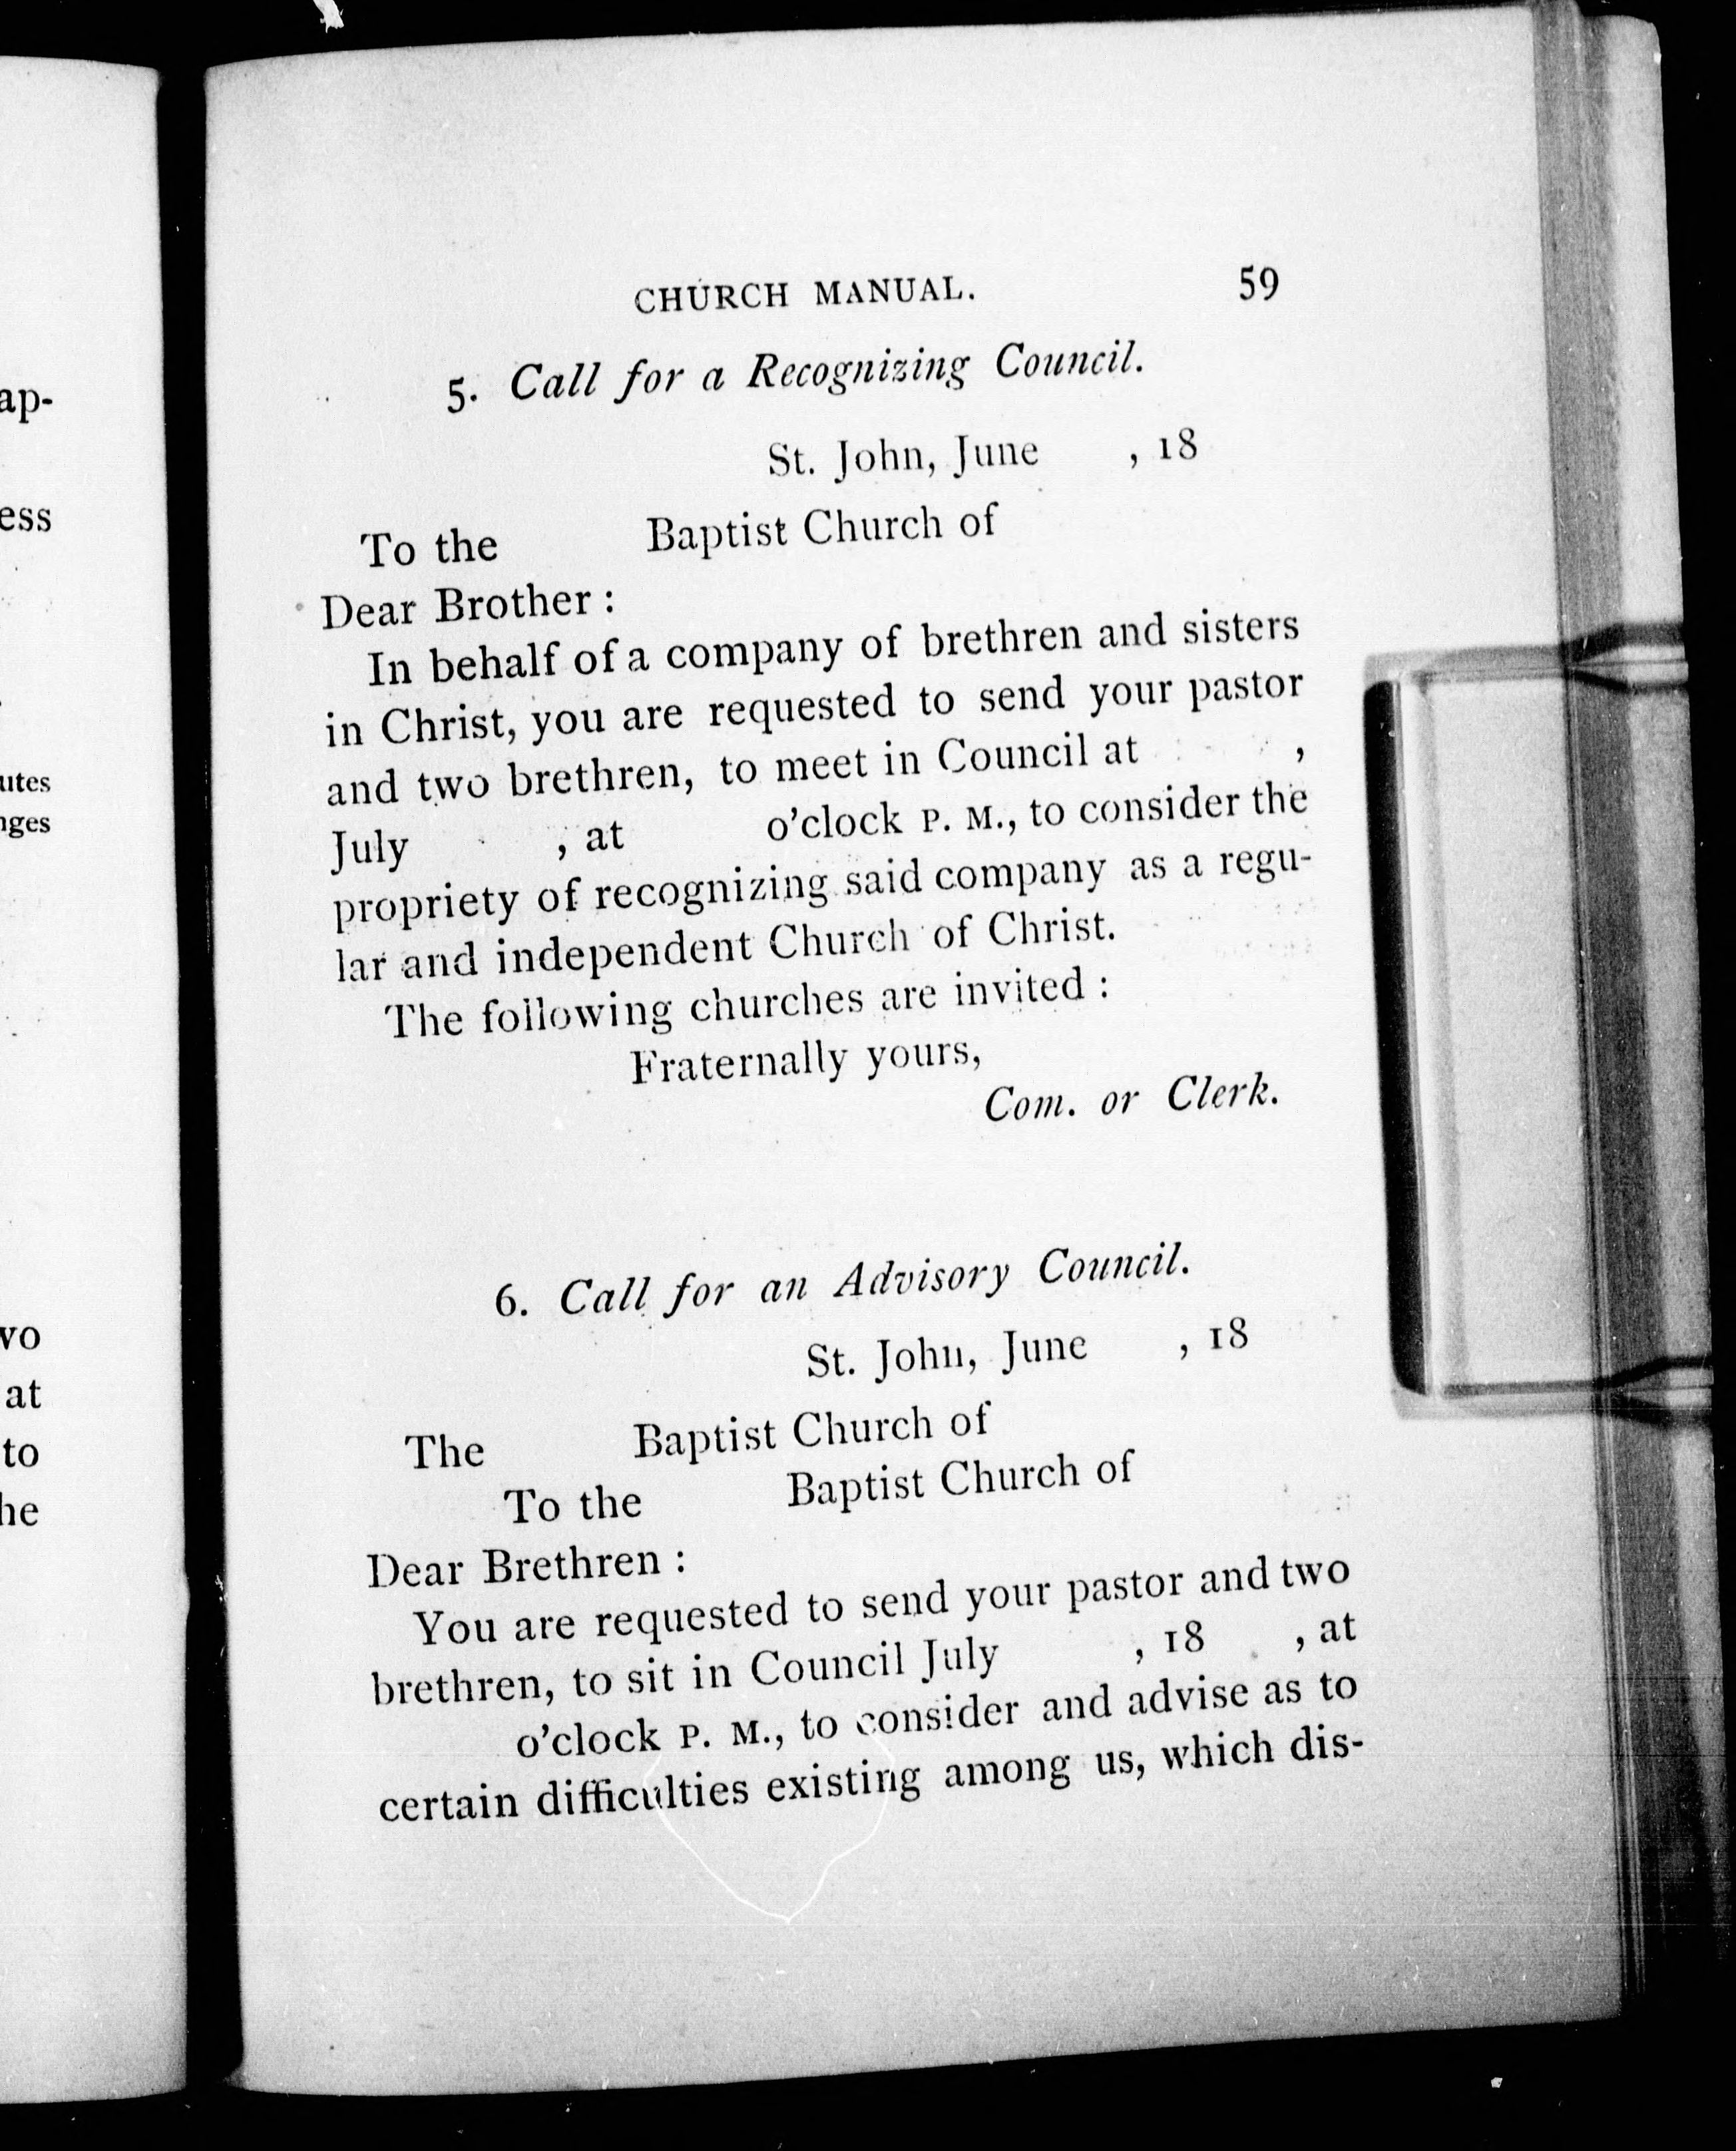 ap-
ess
utes
at
to
CHURCH MANUAL. 59
5. Call for a Recognizing Council.
St. John, June , 18
To the Baptist Church of
Dear Brother :
In behalf of a company of brethren and sisters
in Christ, you are requested to send your pastor
and two brethren, to meet in Council at ,
July , at o'clock P. M., to consider the
propriety of recognizing said company as a regu-
lar and independent Church of Christ.
The following churches are invited :
Fraternally yours,
Com. or Clerk.
6. Call for an Advisory Council.
St. John, June , 18
The Baptist Church of
To the Baptist Church of
Dear Brethren :
You are requested to send your pastor and two
brethren, to sit in Council July , 18 , at
o'clock P. M., to consider and advise as to
certain difficulties existing among us, which dis-